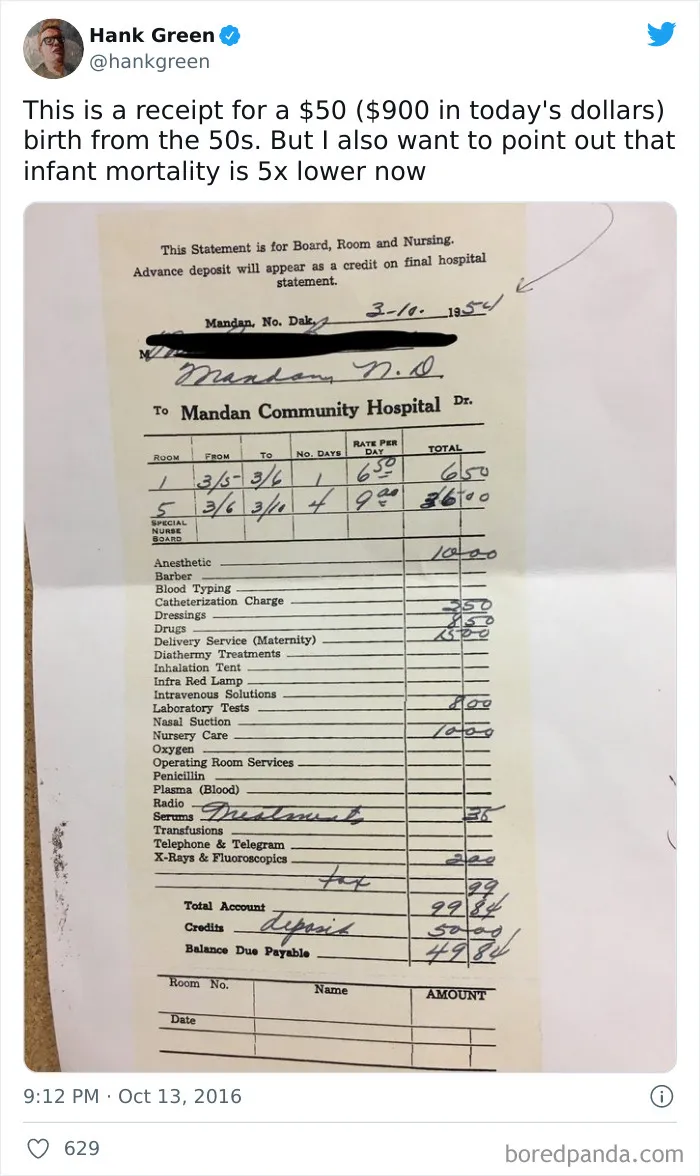 Hank Green
@hankgreen
This is a receipt for a $50 ($900 in today's dollars)
birth from the 50s. But I also want to point out that
infant mortality is 5x lower now
This Statement is for Board, Room and Nursing.
Advance deposit will appear as a credit on final hospital
statement.
Mandan, No. Dak., 3-10. 1954
M
Mandan, N.D.
To Mandan Community Hospital Dr.
ROOM FROM TO NO. DAYS RATE PER DAY TOTAL
1 3/5- 3/6 1 6 50 6 50
5 3/6 3/10 4 9 00 36 00
SPECIAL
NURSE
BOARD
Anesthetic 10 00
Barber
Blood Typing
Catheterization Charge
Dressings 2 50
Drugs 8 50
Delivery Service (Maternity) 15 00
Diathermy Treatments
Inhalation Tent
Infra Red Lamp
Intravenous Solutions
Laboratory Tests 8 00
Nasal Suction
Nursery Care 10 00
Oxygen
Operating Room Services
Penicillin
Plasma (Blood)
Radio
Serums Treatments 35
Transfusions
Telephone & Telegram
X-Rays & Fluoroscopics 2 00
tax 99
Total Account 99 84
Credits deposit 50 00
Balance Due Payable 49 84
Room No. Name AMOUNT
Date
9:12 PM · Oct 13, 2016
629
boredpanda.com